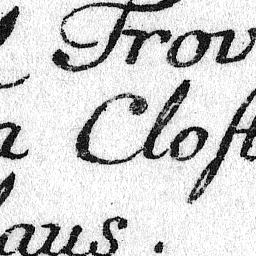 Trov
Cloſt
aus.